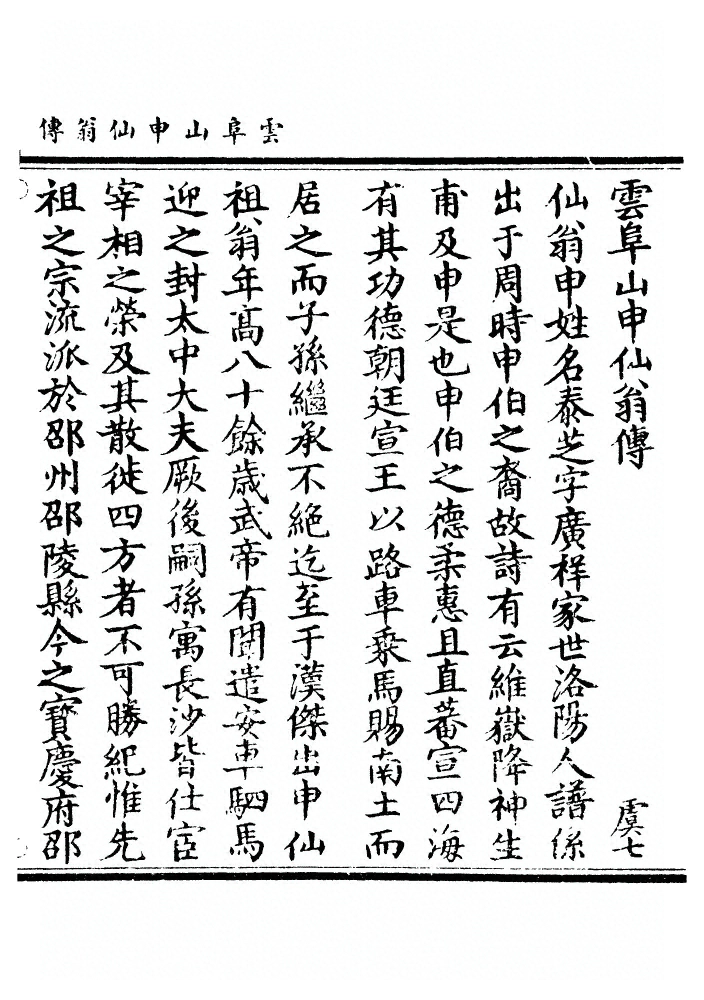 雲阜山申仙翁傳
雲阜山申仙翁傳 虞七
仙翁申姓名泰芝字廣祥家世洛陽人譜係
出于周時申伯之裔故詩有云維嶽降神生
甫及申是也申伯之德柔惠且直蕃宣四海
有其功德朝廷宣王以路車乘馬賜南土而
居之而子孫繼承不絕迄至于漢傑出申仙
祖翁年髙八十餘歲武帝有聞遣安車駟馬
迎之封太中大夫厥後嗣孫寓長沙皆仕宦
宰相之榮及其散徙四方者不可勝紀惟先
祖之宗流派於邵州邵陵縣今之寳慶府邵